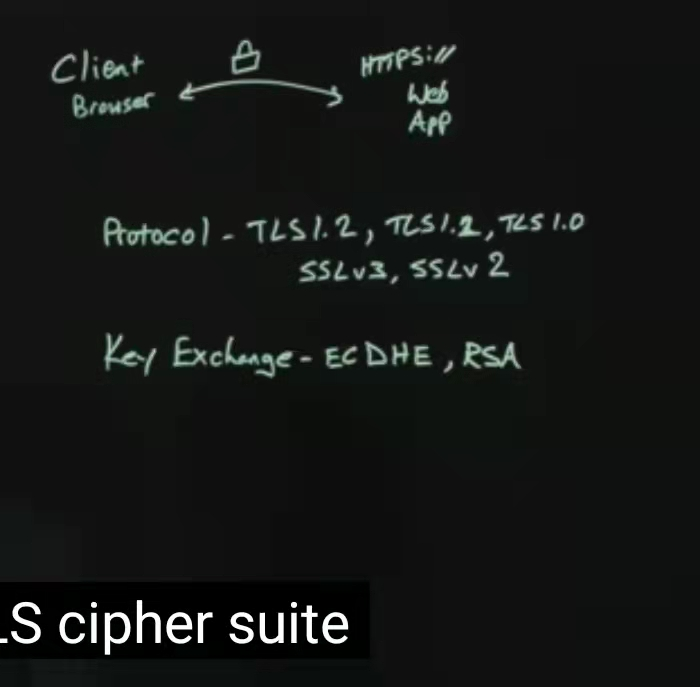 Client HTTPS://
Browser Web
App
Protocol - TLS1.2, TLS1.2, TLS1.0
SSLv3, SSLv2
Key Exchange - ECDHE, RSA
LS cipher suite